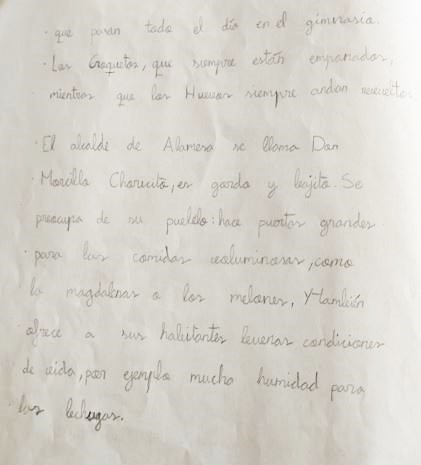 que pasan todo el día en el gimnasia.
Las Croquetas, que siempre están empanadas,
mientras que los Huevos siempre andan revueltos
El alcalde de Alamesa se llama Don
Morcilla Chorucita, es gorda y bajita. Se
preocupa de su pueblo: hace puertas grandes
para las comidas voluminosas, como
la magdalenas o los melones, Y también
ofrece a sus habitantes buenas condiciones
de vida, por ejemplo mucha humedad para
las lechugas.